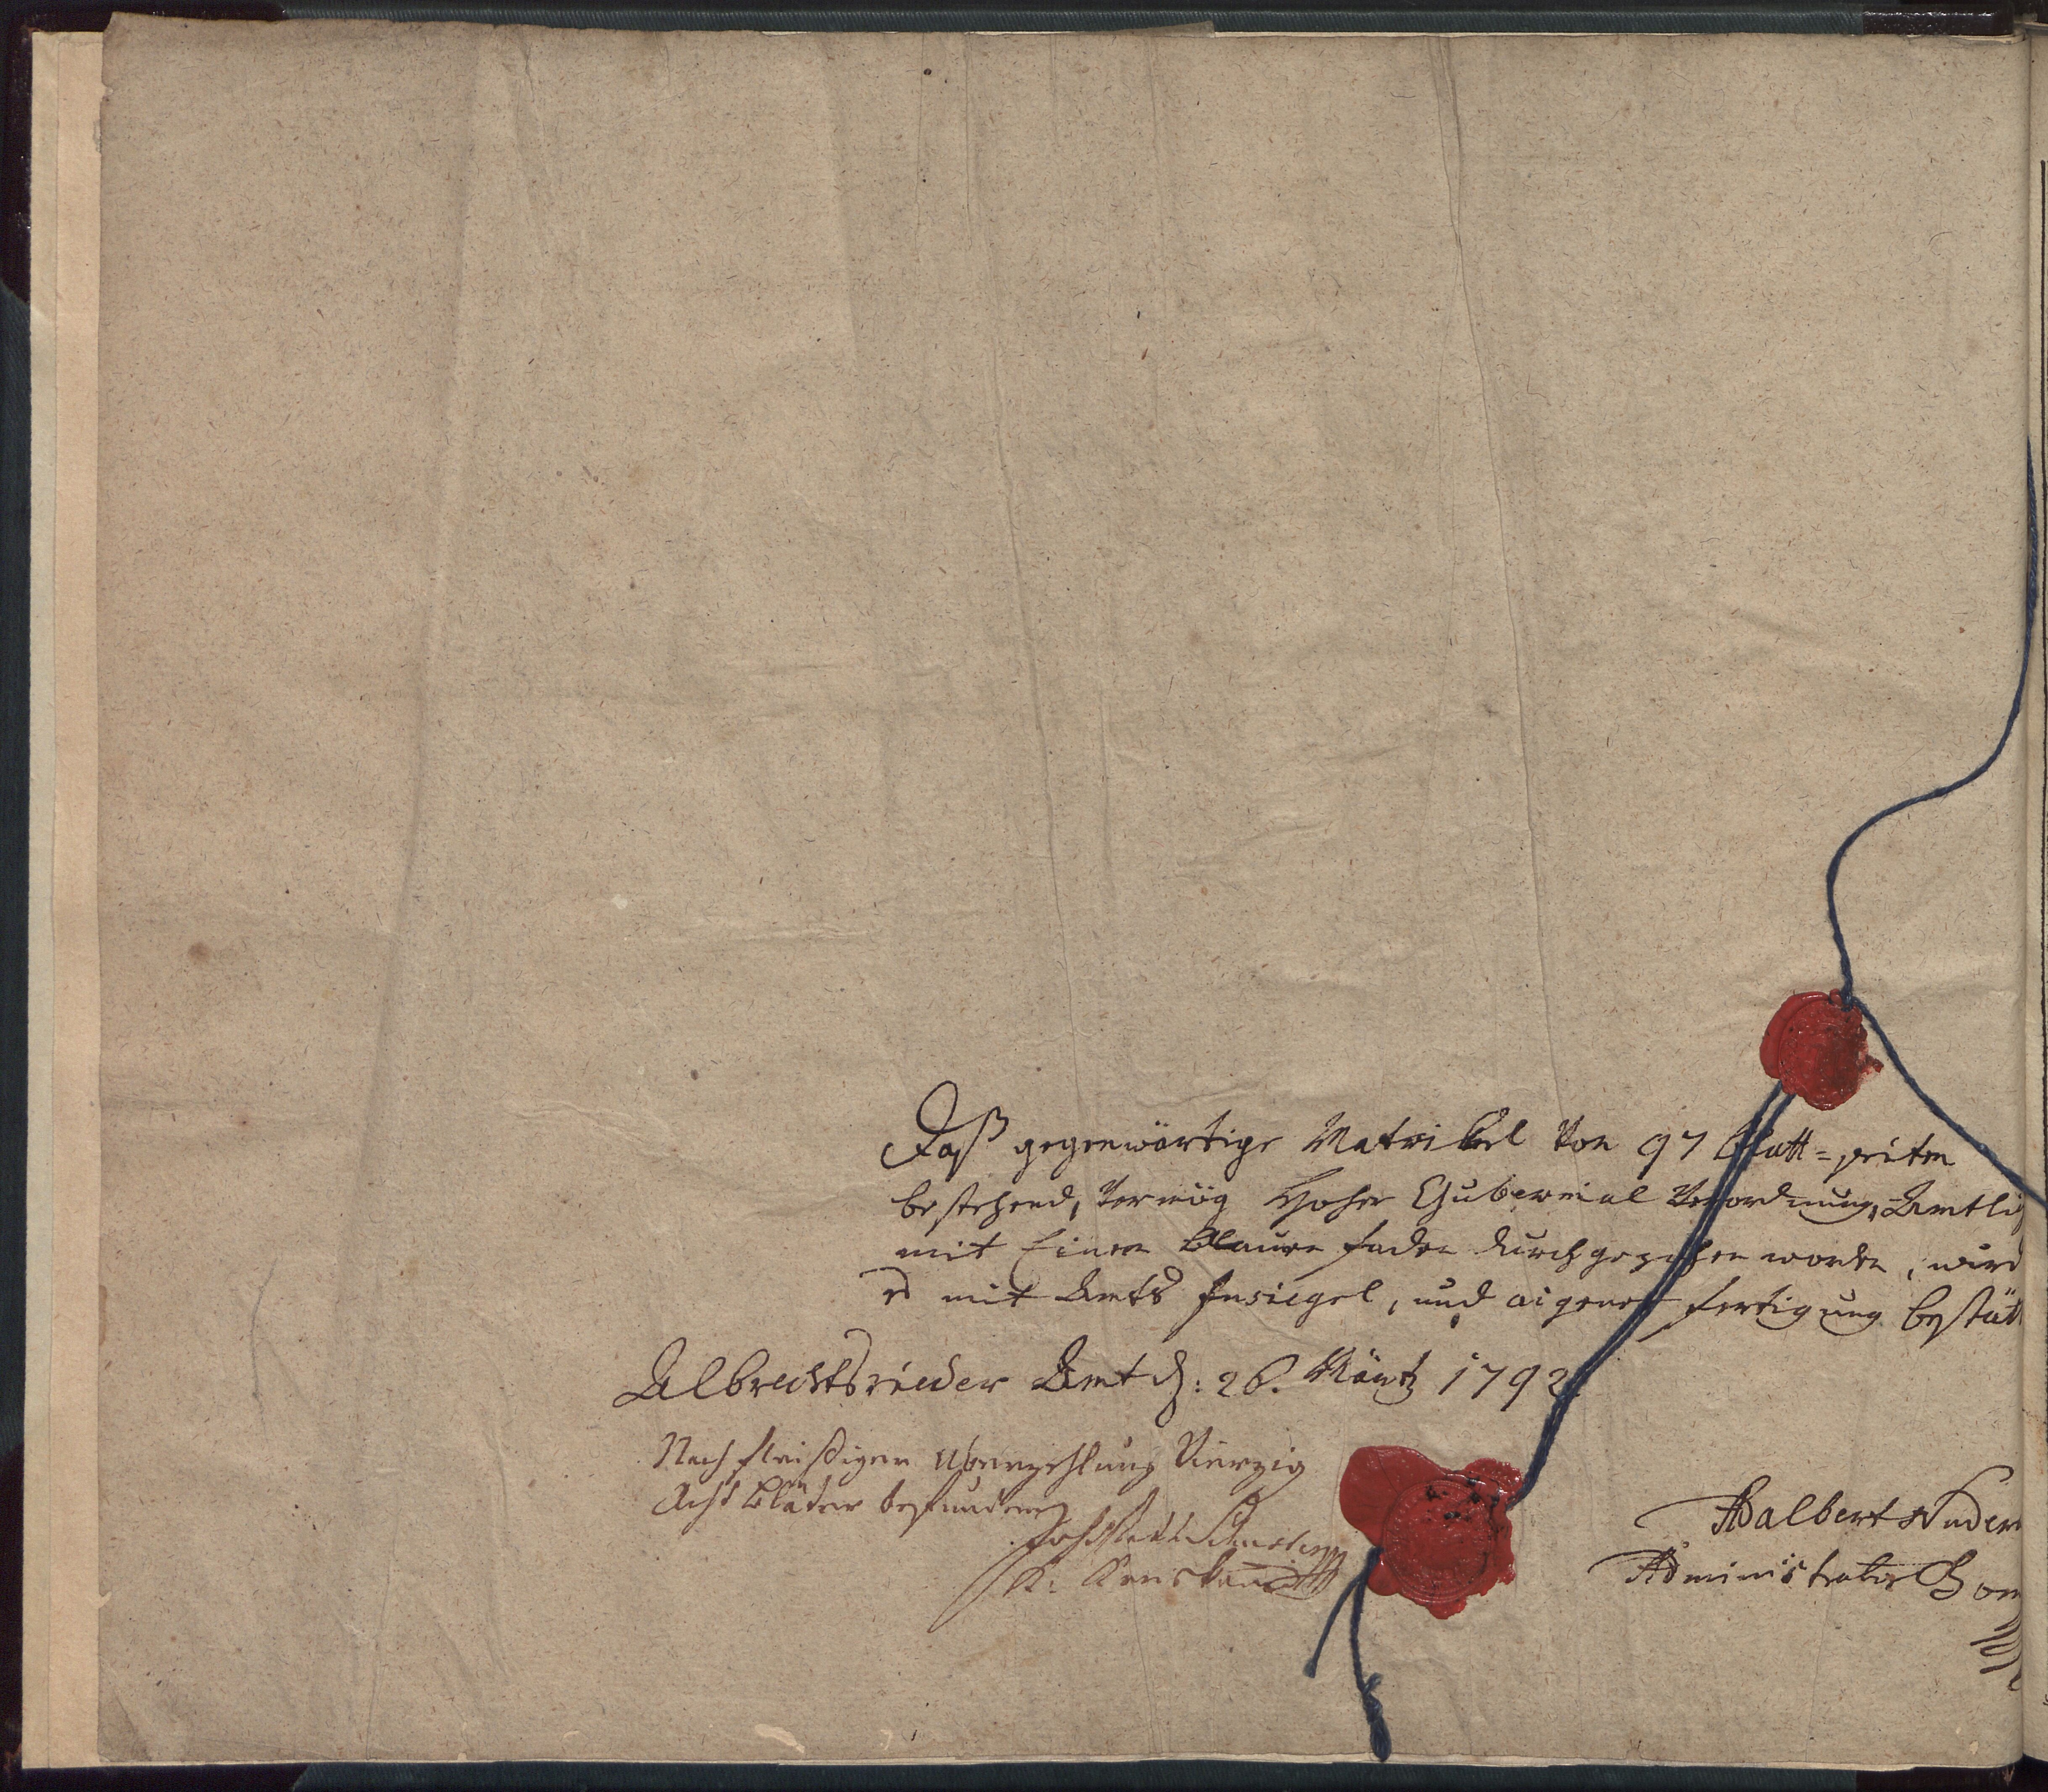 Daß gegenwärtige Matrickel Von 97 Blatt=seiten
bestehend, Vermög Hoher Gubernial Verordnung, Amtli
mit Einen blauen faden durchgezohen worden, wird
es mit Amts Insiegel, und aigener fertigung bestätt
Albrechtsrieder Amt d: 26. Märtz 1792
Nach fleißigen Uiberzehlung Vierzig
Acht Bläter befunden
Adalbert
Administrator